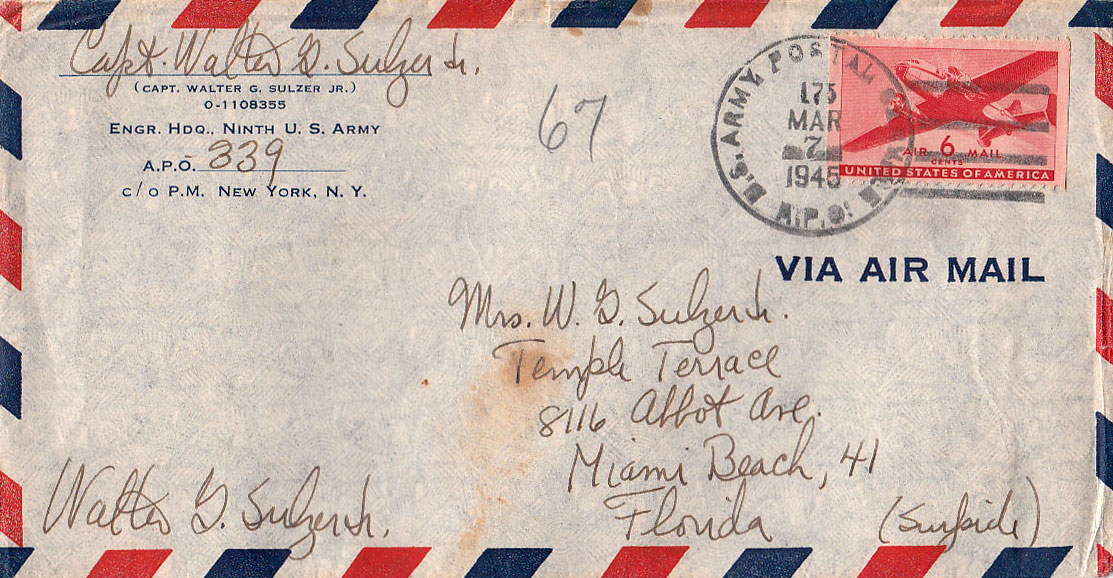 Capt. Walter G. Sulzer Jr.
(CAPT. WALTER G. SULZER JR.)
O-1108355
ENGR. HDQ., NINTH U. S. ARMY
A.P.O. 339
C/O P.M. NEW YORK, N. Y.
67
U.S. ARMY POSTAL
175
MAR
7
1945
A.P.O.
AIR 6 MAIL
CENTS
UNITED STATES OF AMERICA
VIA AIR MAIL
Mrs. W. G. Sulzer Jr.
Temple Terrace
8116 Abbot Ave.
Miami Beach, 41
Florida (Surfside)
Walter G. Sulzer Jr.